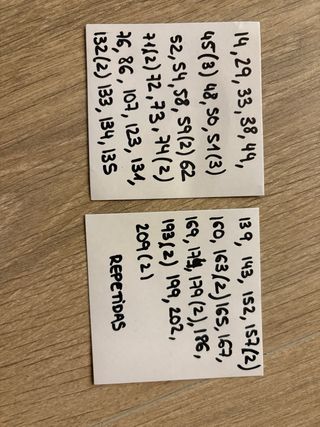 14, 29, 33, 38, 44,
45(3) 48, 50, 51(3)
52, 54, 58, 59(2) 62
71(2) 72, 73, 74(2)
76, 86, 107, 123, 131,
132(2) 133, 134, 135
139, 143, 152, 157(2)
160, 163(2) 165, 167,
169, 174, 179(2), 186,
193(2) 199, 202,
209(2)
REPETIDAS